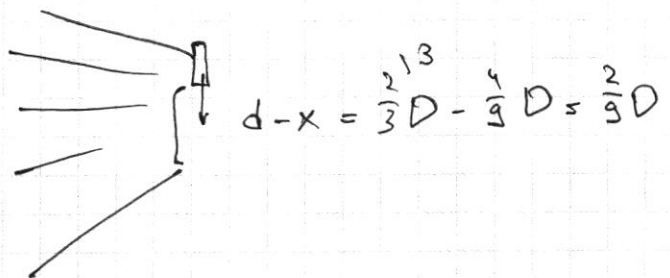 d - x = 2/3 D - 4/9 D = 2/9 D